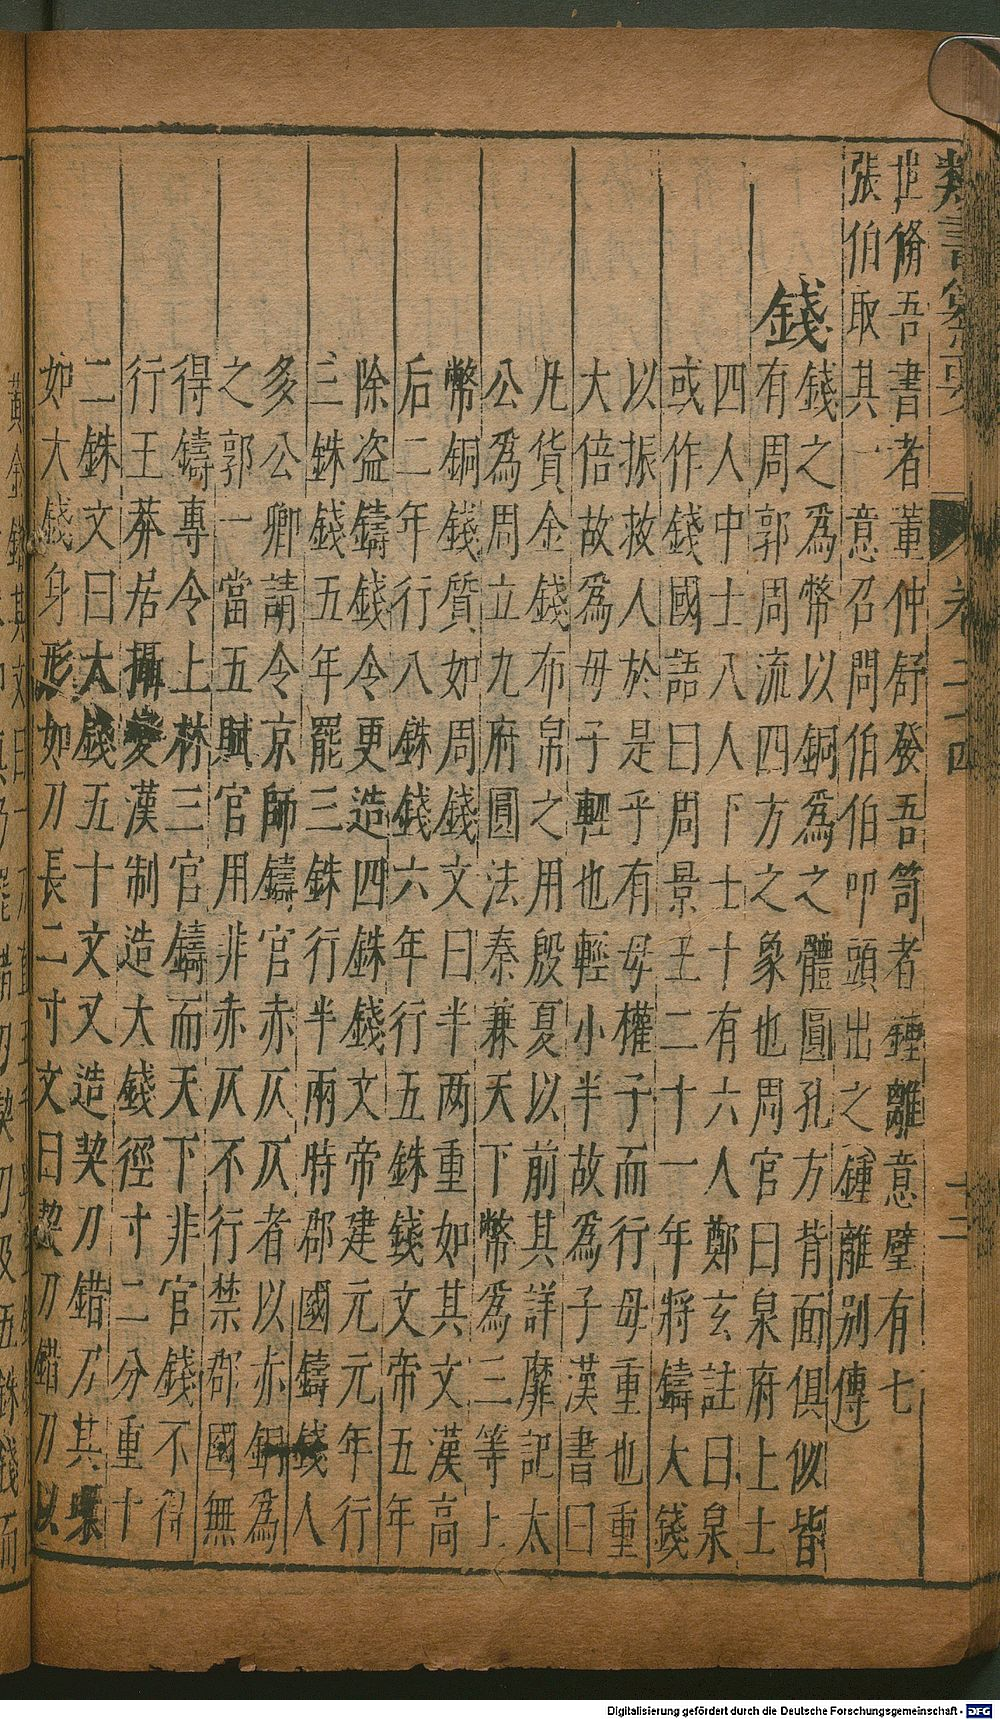 類書纂要 卷二十四 十二
世脩吾書者董仲舒發吾笥者鍾離意璧有七
張伯取其一意召問伯伯叩頭出之(鍾離別傳)
錢
錢之為幣以銅為之體圓孔方背面俱似皆
有周郭周流四方之象也周官曰泉府上士
四人中士八人下士十有六人鄭玄註曰泉
或作錢國語曰周景王二十一年將鑄大錢
以振救人於是乎有母權子而行母重也重
大倍故為母子輕也輕小半故為子漢書曰
凡貨金錢布帛之用殷夏以前其詳靡記太
公為周立九府圓法秦兼天下幣為三等上
幣銅錢質如周錢文曰半两重如其文漢高
后二年行八銖錢六年行五銖錢文帝五年
除盗鑄錢令更造四銖錢文帝建元元年行
三銖錢五年罷三銖行半兩時郡國鑄錢人
多公卿請令京師鑄官赤仄仄者以赤銅為
之郭一當五賦官用非赤仄不行禁郡國無
得鑄專令上林三官鑄而天下非官錢不得
行王莽居攝變漢制造大錢徑寸二分重十
二銖文曰大錢五十文又造契刀錯刀其環
如大錢身形如刀長二寸文曰契刀錯刀以
黃金錯其文曰一刀直五千
Digitalisierung gefördert durch die Deutsche Forschungsgemeinschaft - DFG